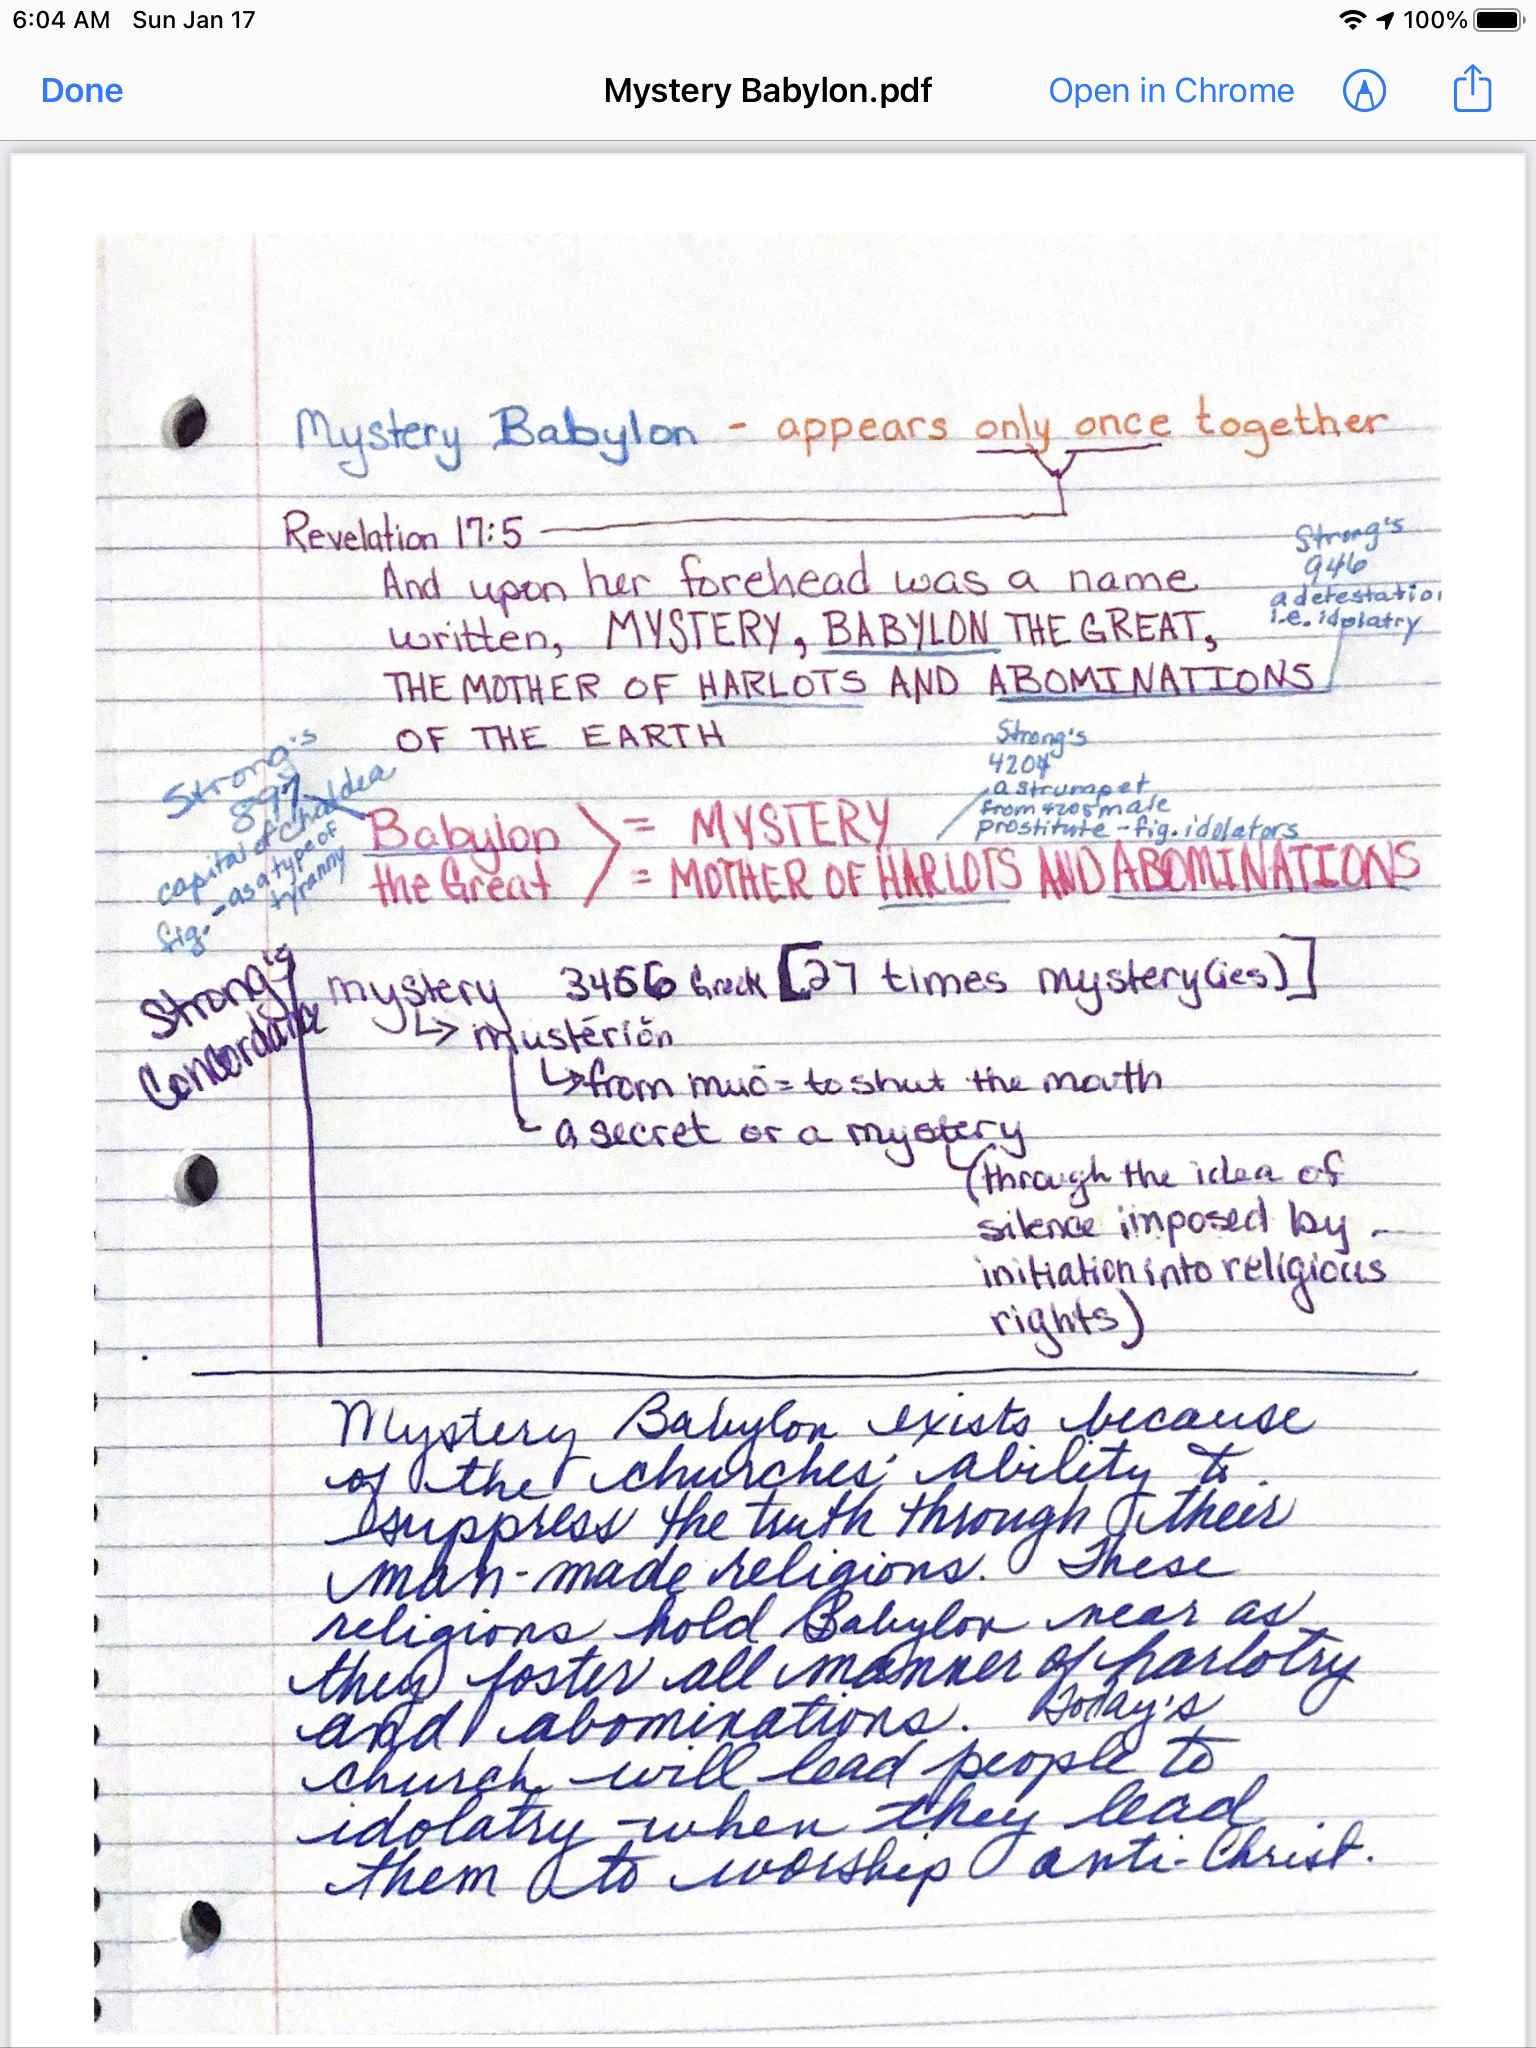 6:04 AM Sun Jan 17
100%
Done
Mystery Babylon.pdf
Open in Chrome
Mystery Babylon - appears only once together
Revelation 17:5
Strong's
946
a detestatio
i.e. idolatry
And upon her forehead was a name
written, MYSTERY, BABYLON THE GREAT,
THE MOTHER OF HARLOTS AND ABOMINATIONS
OF THE EARTH
Strong's
897
capital of Chaldea
fig. - as a type of
tyranny
Strong's
4204
a strumpet
from 4205 male
prostitute - fig. idolators
Babylon = MYSTERY
the Great = MOTHER OF HARLOTS AND ABOMINATIONS
Strong's
Concordance
mystery 3466 Greek [27 times mystery(ies)]
mustērion
from muō = to shut the mouth
a secret or a mystery
(through the idea of
silence imposed by
initiation into religious
rights)
Mystery Babylon exists because
of the churches' ability to
suppress the truth through their
man-made religions. These
religions hold Babylon near as
they foster all manner of harlotry
and abominations. Today's
church will lead people to
idolatry when they lead
them to worship anti-Christ.